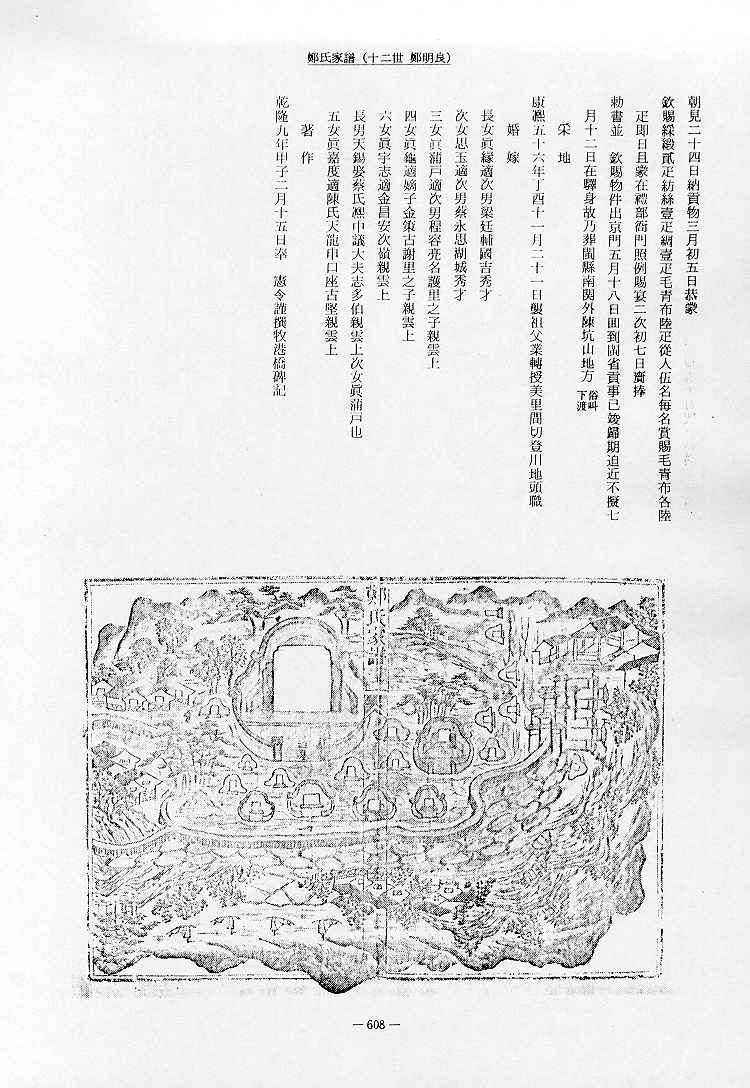 鄭氏家譜（十二世 鄭明良）
朝見二十四日納貢物三月初五日恭蒙
欽賜綵緞貳疋紡絲壹疋綢壹疋毛青布陸疋從人伍名每名賞賜毛青布各陸
疋即日且蒙在禮部衙門照例賜宴二次初七日賷捧
勅書並　欽賜物件出京門五月十八日囬到閩省貢事已竣歸期迫近不擬七
月十二日在驛身故乃葬閩縣南関外陳坑山地方 俗叫下渡
采地
康熈五十六年丁酉十一月二十一日襲祖父業轉授美里間切登川地頭職
婚嫁
長女眞縁適次男梁廷輔國吉秀才
次女思玉適次男蔡永思湖城秀才
三女眞蒲戸適次男程容亮名護里之子親雲上
四女眞龜適嫡子金策古謝里之子親雲上
六女眞宇志適金昌安次嶺親雲上
長男天錫娶蔡氏凞中議大夫志多伯親雲上次女眞蒲戸也
五女眞嘉度適陳氏天龍申口座古堅親雲上
著作
乾隆九年甲子二月十五日奉　憲令謹撰牧港橋碑記
鄭氏家譜
— 608 —